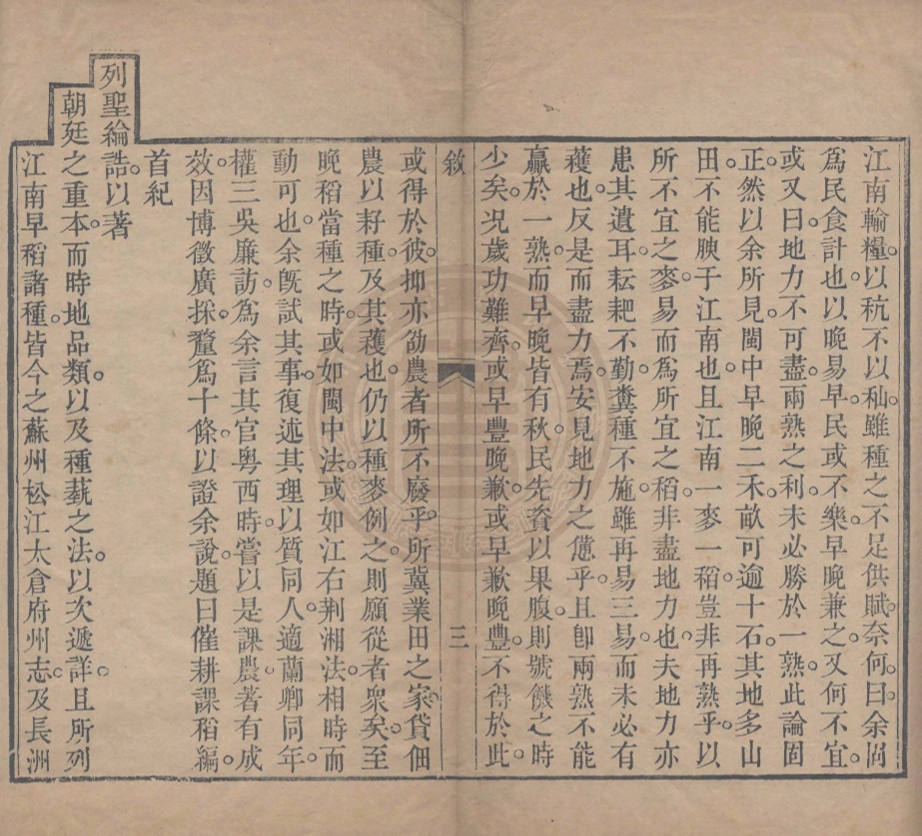 江南輸糧以秔不以秈雖種之不足供賦奈何曰余固
爲民食計也以晚易早民或不樂早晚兼之又何不宜
或又曰地力不可盡兩熟之利未必勝於一熟此論固
正然以余所見閩中早晚二禾畝可逾十石其地多山
田不能腴于江南也且江南一麥一稻豈非再熟乎以
所不宜之麥易而爲所宜之稻非盡地力也夫地力亦
患其遺耳耘耙不勤糞種不施雖再易三易而未必有
穫也反是而盡力焉安見地力之憊乎且卽兩熟不能
贏於一熟而早晚皆有秋民先資以果腹則號饑之時
少矣况歲功難齊或早豐晚歉或早歉晚豐不得於此
敘
三
或得於彼抑亦劭農者所不廢乎所冀業田之家貸佃
農以籽種及其穫也仍以種麥例之則願從者衆矣至
晚稻當種之時或如閩中法或如江右荆湘法相時而
動可也余旣試其事復述其理以質同人適蘭卿同年
權三吳廉訪爲余言其官粤西時嘗以是課農著有成
效因博徵廣採釐爲十條以證余說題曰催耕課稻編
首紀
列聖綸誥以著
朝廷之重本而時地品類以及種蓺之法以次遞詳且所列
江南早稻諸種皆今之蘇州松江太倉府州志及長洲